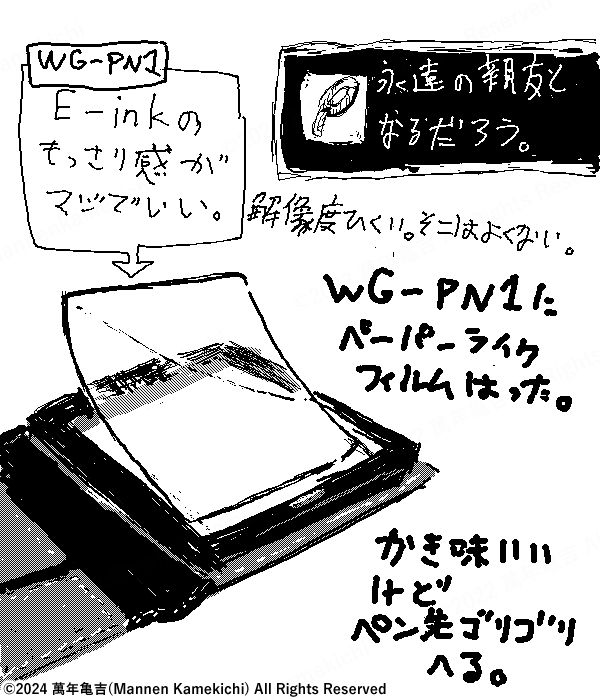 WG-PN1
E-inkの
もっさり感が
マジでいい。
永遠の親友と
なるだろう。
解像度ひくい。そこはよくない。
WG-PN1に
ペーパーライク
フィルムはった。
かき味いい
けど
ペン先ゴリゴリ
へる。
©2024 萬年亀吉(Mannen Kamekichi) All Rights Reserved